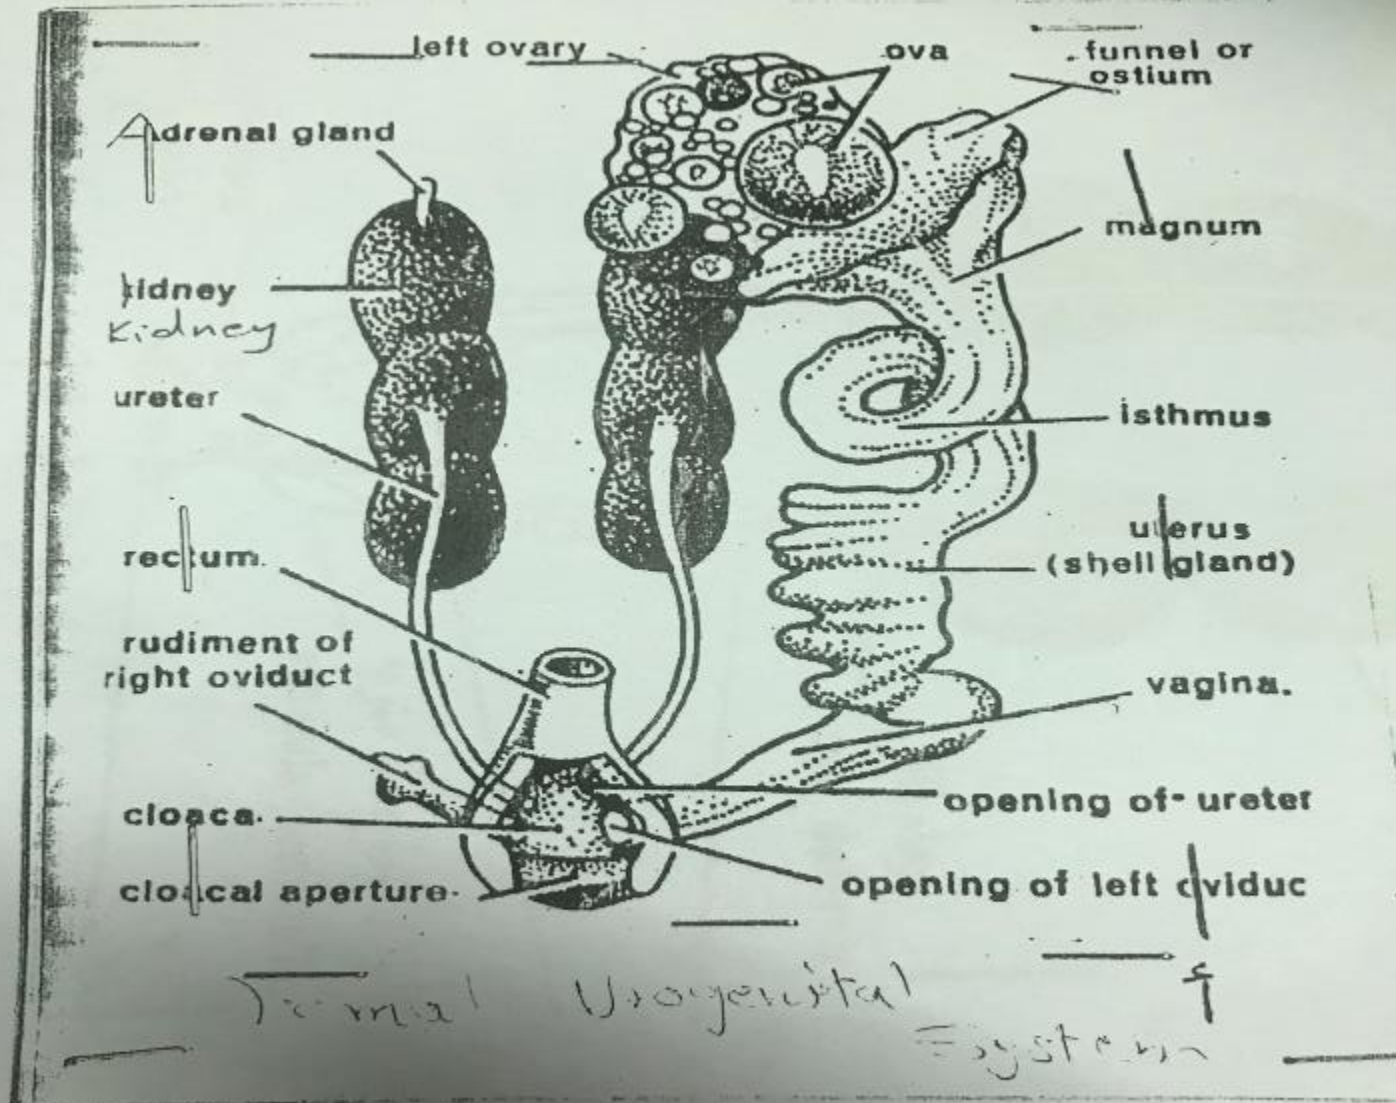 left ovary
ova
funnel or
ostium
Adrenal gland
magnum
kidney
Kidney
ureter
isthmus
uterus
(shell gland)
rectum.
rudiment of
right oviduct
vagina.
cloaca.
opening of ureter
cloacal aperture.
opening of left oviduc
Urogenital
System